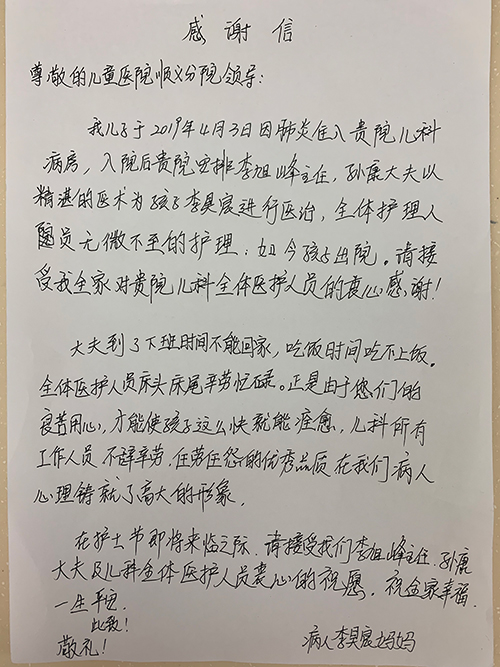 感谢信
尊敬的儿童医院顺义分院领导:
我儿子于2019年4月3日因肺炎住入贵院儿科
病房,入院后贵院安排李旭峰主任,孙康大夫以
精湛的医术为孩子李昊宸进行医治,全体护理人
员无微不至的护理,如今孩子出院。请接
受我全家对贵院儿科全体医护人员的衷心感谢!
大夫到了下班时间不能回家,吃饭时间吃不上饭。
全体医护人员床头床尾辛劳忙碌。正是由于您们的
良苦用心,才能使孩子这么快就能痊愈,儿科所有
工作人员不辞辛劳,任劳任怨的优秀品质在我们病人
心理铸就了高大的形象。
在护士节即将来临之际,请接受我们李旭峰主任、孙康
大夫及儿科全体医护人员衷心的祝愿,祝全家幸福
一生平安
此致!
敬礼!
病人李昊宸妈妈